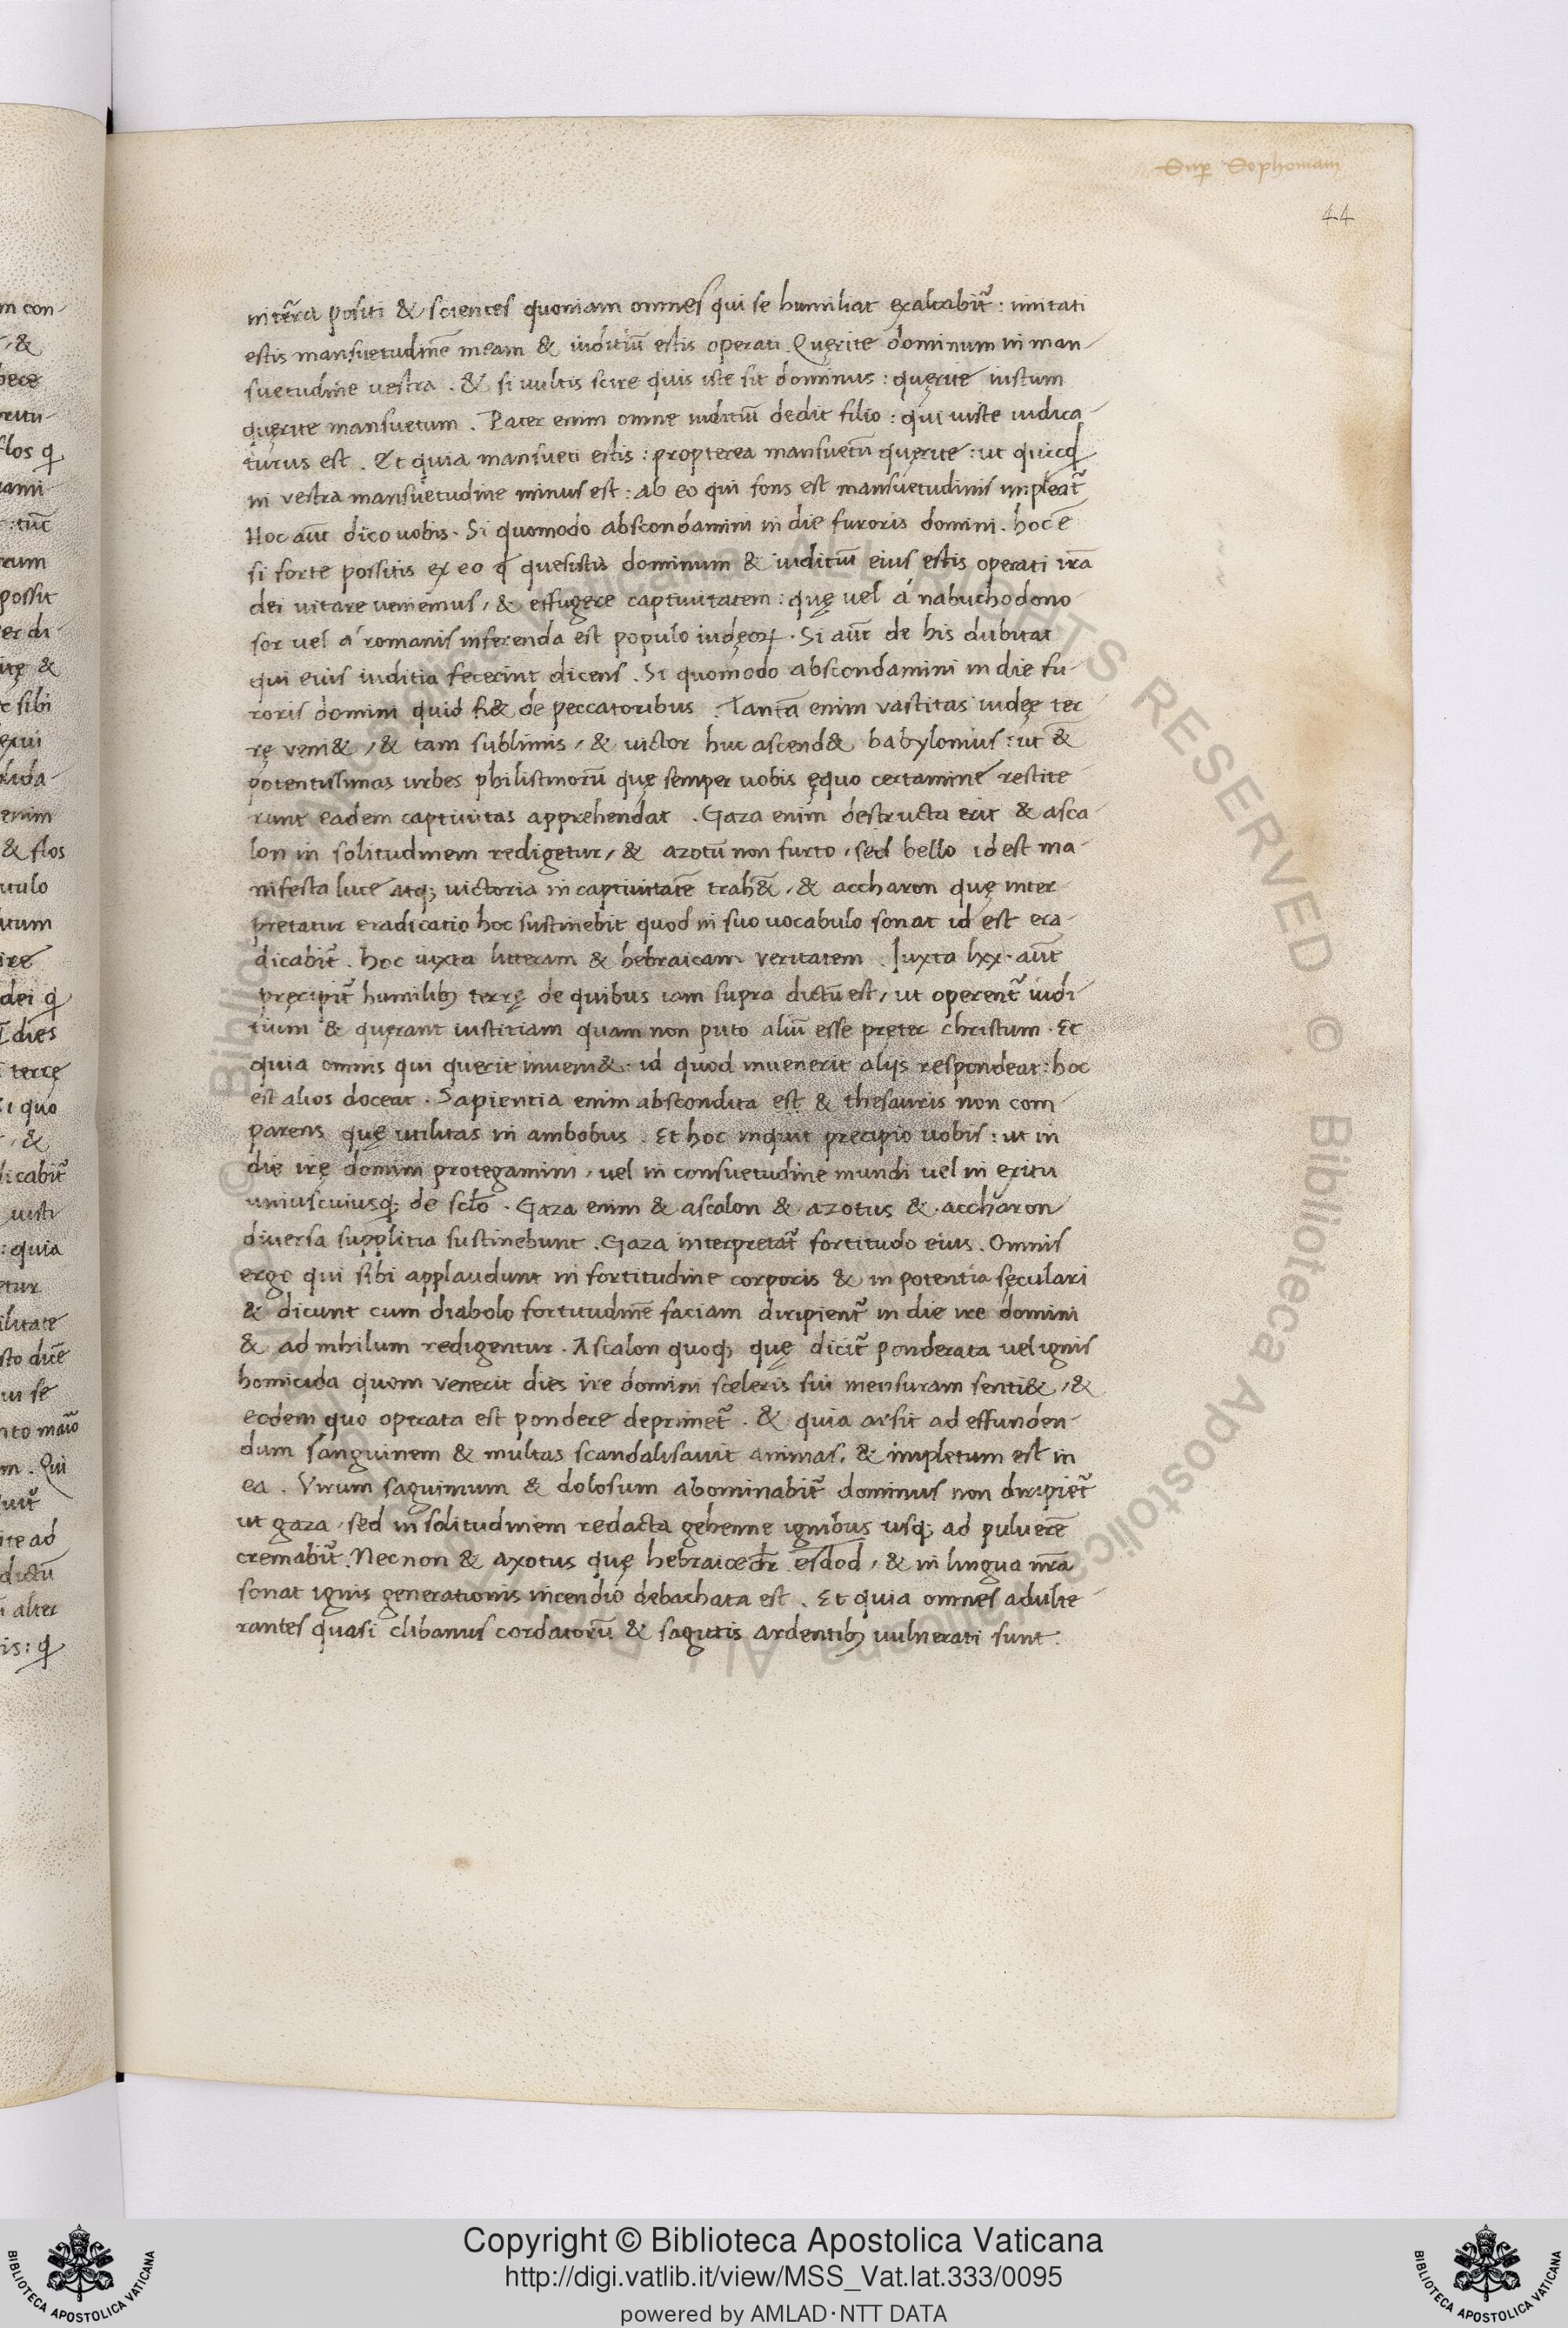 Sup̱ Sophoniam
44
in tr̄ra positi & scientes quoniam omnes qui se humiliat exaltabit᷑ : imitati
estis mansuetudinē meam & iuditiū estis operati . Quęrite dominum in man-
suetudine vestra . & si uultis scire quis iste sit dominus : quęrite iustum
quęrite mansuetum . Pater enim omne iuditiū dedit filio : qui iuste iudica-
turus est . Et quia mansueti estis : propterea mansuetū quęrite : ut quicq̄d
in vestra mansuetudine minus est : ab eo qui fons est mansuetudinis impleat᷑
Hoc aūt dico uobis . Si quomodo abscondamini in die furoris domini . hoc ē
si forte possitis ex eo ꝙ quesistis dominum & iuditiū eius estis operati irā
dei uitare uenientis , & effugere captiuitatem : quę vel á nabuchodono
sor vel á romanis inferenda est populo iudęoꝝ . Si aūt de his dubitat
qui eius iuditia fecerint dicens . Si quomodo abscondamini in die fu-
roris domini quid fi& de peccatoribus . Tanta enim vastitas iudęę ter
rę veni& , & tam sublimis , & uictor huc ascend& babylonius : ut &
potentissimas urbes philistinorū quę semper uobis ęquo certamine restite
runt eadem captiuitas apprehendat . Gaza enim destructa erit & asca-
lon in solitudinem redigetur , & azotū non furto , sed bello id est ma-
nifesta luce atq; uictoria in captiuitatē trah& , & accharon quę inter
pretatur eradicatio hoc sustinebit quod in suo uocabulo sonat id est era-
dicabit᷑ . hoc iuxta litteram & hebraicam veritatem . Iuxta lxx . aūt
pręcipit᷑ humilib; terrę de quibus iam supra dictū est , ut operent᷑ iudi
tium & quęrant iustitiam quam non puto aliū esse pręter christum . Et
quia omnis qui querit inueni& : id quod inuenerit alijs respondeat : hoc
est alios doceat . Sapientia enim abscondita est & thesauris non com-
parens quę utilitas in ambobus . Et hoc inquit precipio uobis : ut in
die irę domini protegamini , vel in consuetudine mundi vel in exitu
uniuscuiusq; de sc̄lo . Gaza enim & ascalon & azotus & accharon
diuersa supplitia sustinebunt . Gaza interpretat᷑ fortitudo eius . Omnis
ergo qui sibi applaudunt in fortitudine corporis & in potentia sęculari
& dicunt cum diabolo fortitudinē faciam diripient᷑ in die ire domini
& ad nihilum redigentur . Ascalon quoq; quę dicit᷑ ponderata uel ignis
homicida quom venerit dies ire domini sceleris sui mensuram senti& , &
eodem quo operata est pondere deprimet᷑ . & quia arsit ad effunden-
dum sanguinem & multas scandalisauit animas , & impletum est in
ea . Virum saguinum & dolosum abominabit᷑ dominus non diripiet᷑
ut gaza , sed in solitudinem redacta gehenne ignibus usq; ad puluerē
cremabit᷑ . Nec non & axotus quę hebraice dr̄ esdod , & in lingua nr̄a
sonat ignis generationis incendio debachata est . Et quia omnes adulte-
rantes quasi clibanus cordatorū & sagittis ardentib; uulnerati sunt .
Copyright © Biblioteca Apostolica Vaticana
http://digi.vatlib.it/view/MSS_Vat.lat.333/0095
powered by AMLAD·NTT DATA